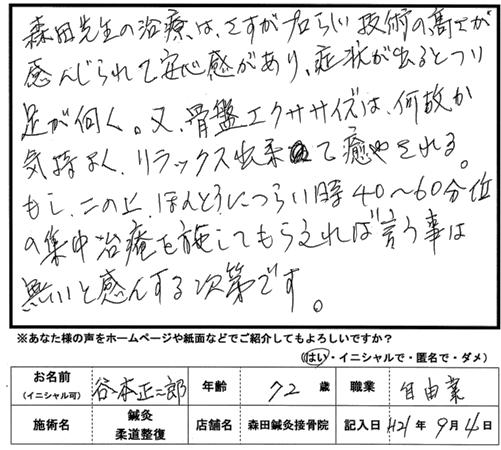 森田先生の治療は、さすがプロらしい技術の高さが
感んじられて安心感があり、症状が出るとつい
足が向く。又、骨盤エクササイズは、何故か
気持よく、リラックス出来て癒やされる。
もし、この上、ほんとうにつらい時40〜60分位
の集中治療を施してもらえれば言う事は
無いと感んずる次第です。
※あなた様の声をホームページや紙面などでご紹介してもよろしいですか?
(はい・イニシャルで・匿名で・ダメ)
お名前 (イニシャル可) 谷本正二郎 年齢 72 歳 職業 自由業
施術名 鍼灸 柔道整復 店舗名 森田鍼灸接骨院 記入日 H21年 9月 4日